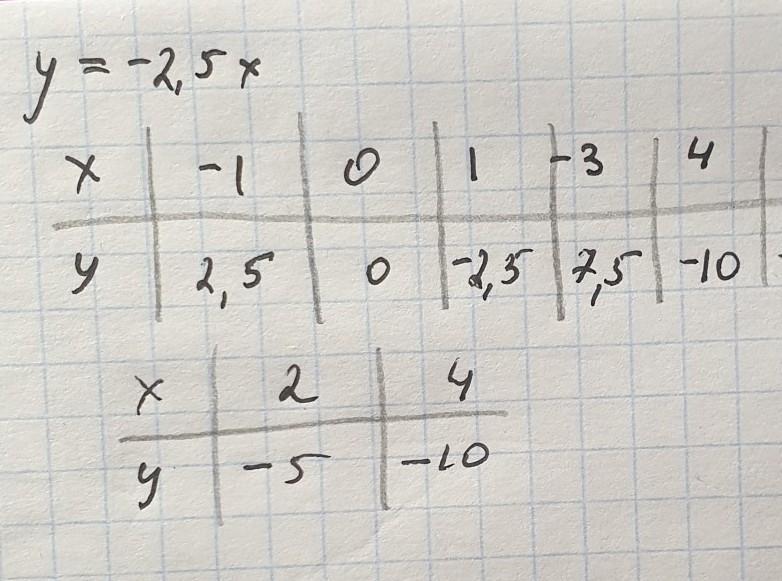 y = -2,5x
x -1 0 1 -3 4
y 2,5 0 -2,5 7,5 -10
x 2 4
y -5 -10